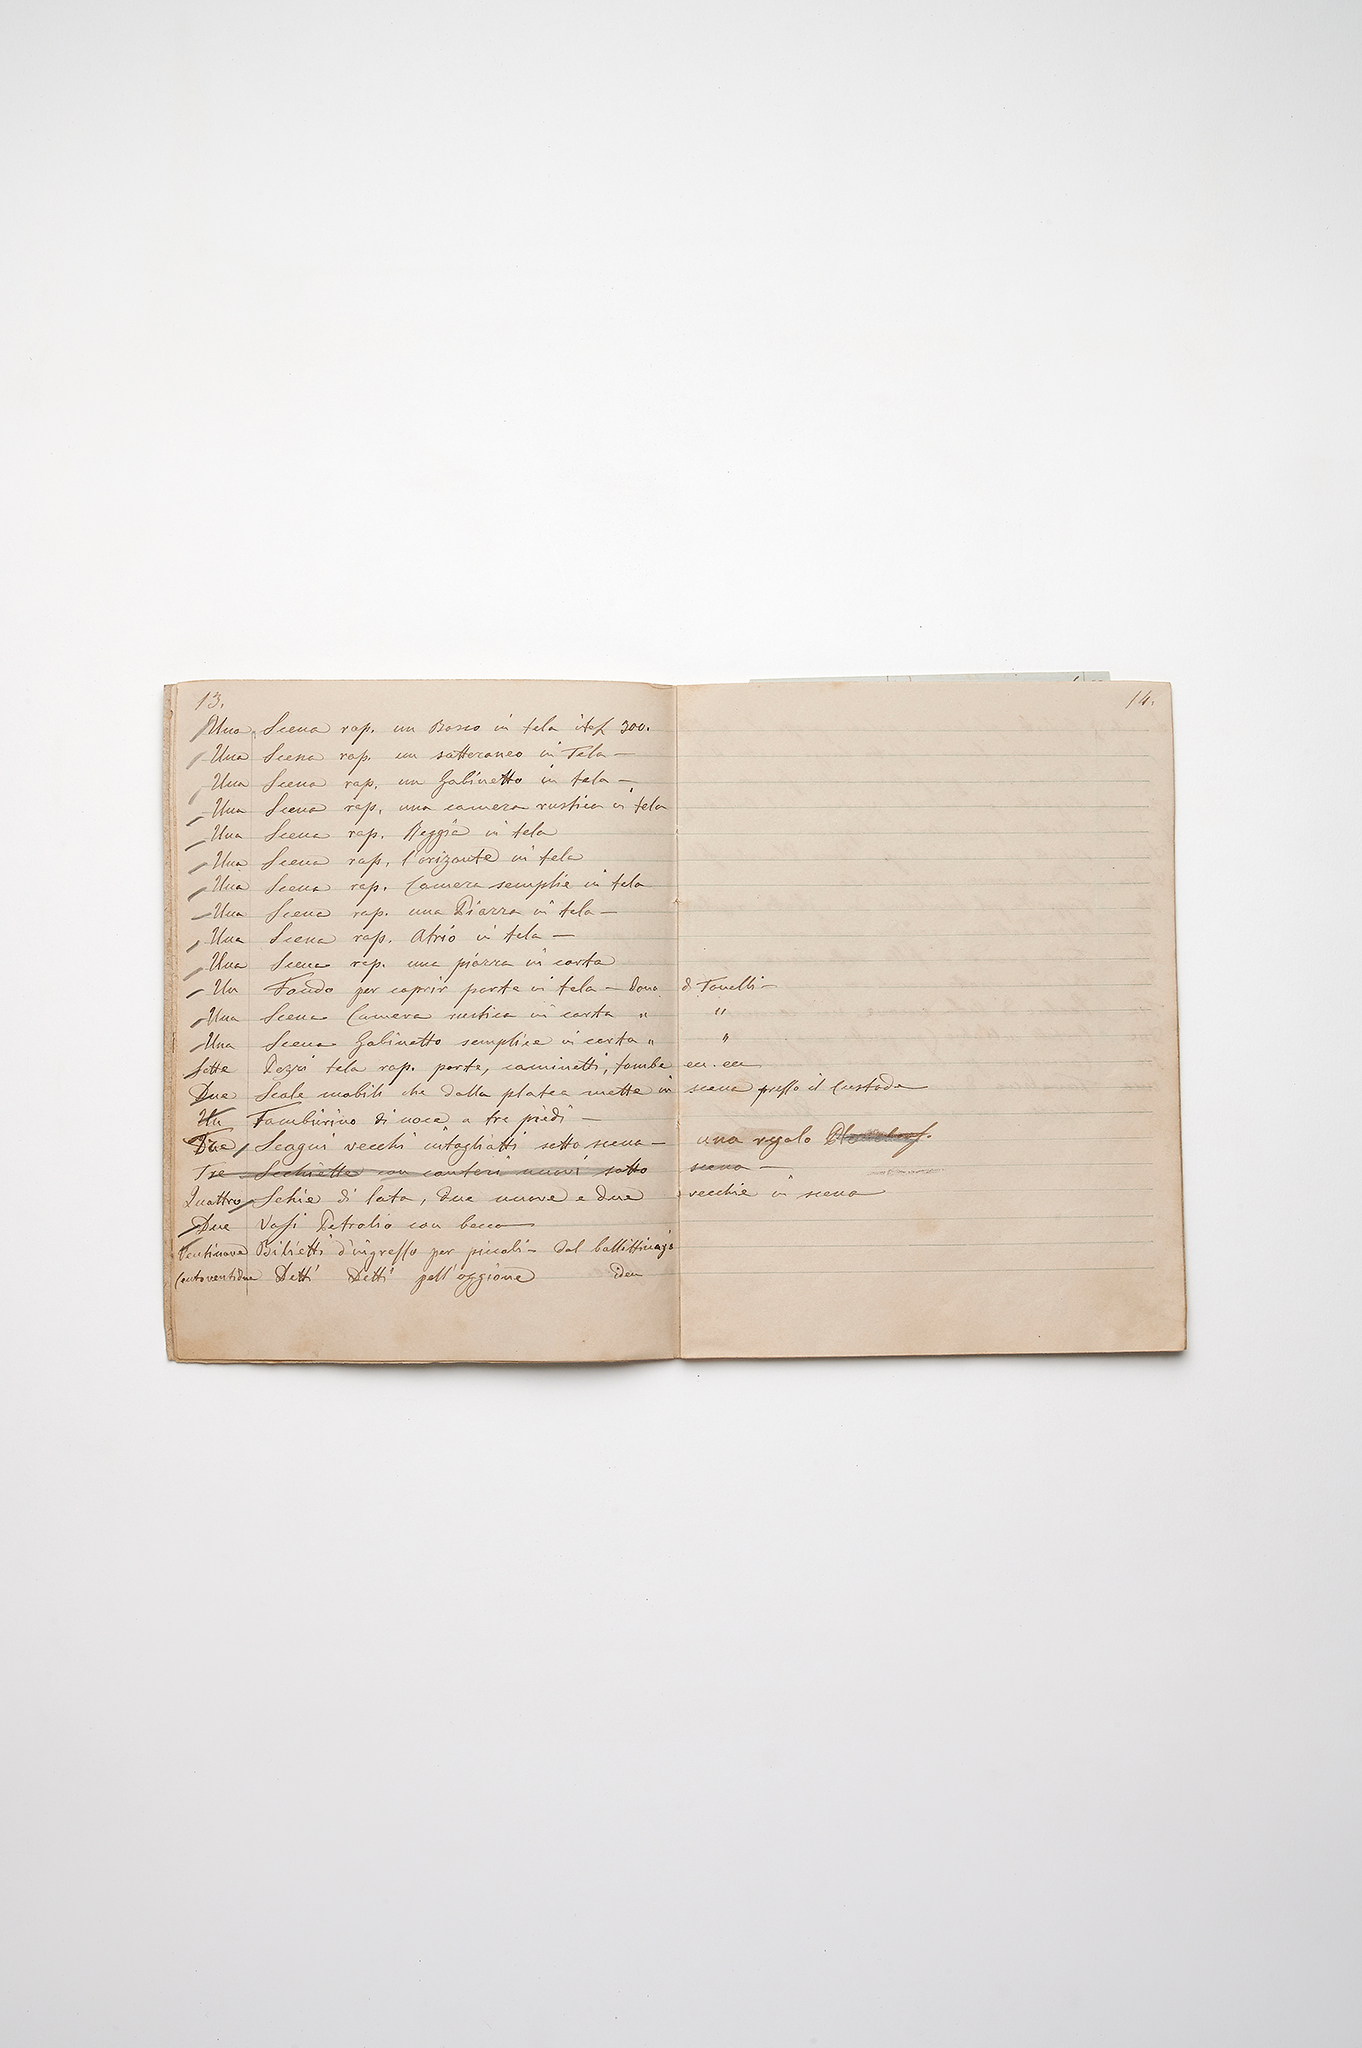 13.
14.
Una Scena rap. un Bosco in tela 300.
Una Scena rap. un sotteraneo in Tela —
Una Scena rap. un Gabinetto in tela —
Una Scena rap. una camera rustica in tela
Una Scena rap. Reggia in tela
Una Scena rap. l'orizonte in tela
Una Scena rap. Camera semplice in tela
Una Scena rap. una Piazza in tela —
Una Scena rap. Atrio in tela —
Una Scena rap. una piazza in carta
Un Fondo per coprir porte in tela — Dono di Tonelli —
Una Scena Camera rustica in carta " "
Una Scena Gabinetto semplice in carta " "
Sette Pezzi tela rap. porte, caminetti, tombe ec. ec
Due Scale mobili che dalla platea mette in scena presso il Custode
Un Tamburino di noce a tre piedi —
Due Scagni vecchi intagliatti sotto scena — una regalo
Tre Sechiette con manni sotto scena —
Quattro Sechie di lata, due nuove e due vecchie in scena
Due Vasi Petrolio con becco
Ventinove Biglietti d'ingresso per piccoli — dal bollettinajo
Centoventidue Detti Detti pell'oggione idem